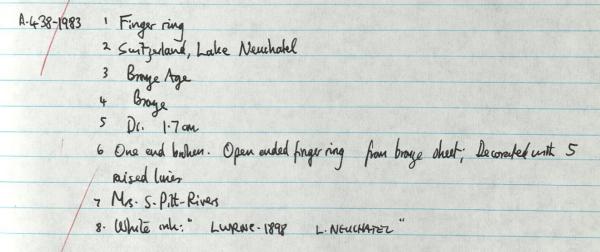 A.438-1983 1 Finger ring
2 Switzerland, Lake Neuchatel
3 Bronze Age
4 Bronze
5 Di. 1.7 cm
6 One end broken. Open ended finger ring from bronze sheet; Decorated with 5
raised lines
7 Mrs. S. Pitt-Rivers
8. White ink: " LWRNE-1898 L. NEUCHATEL "